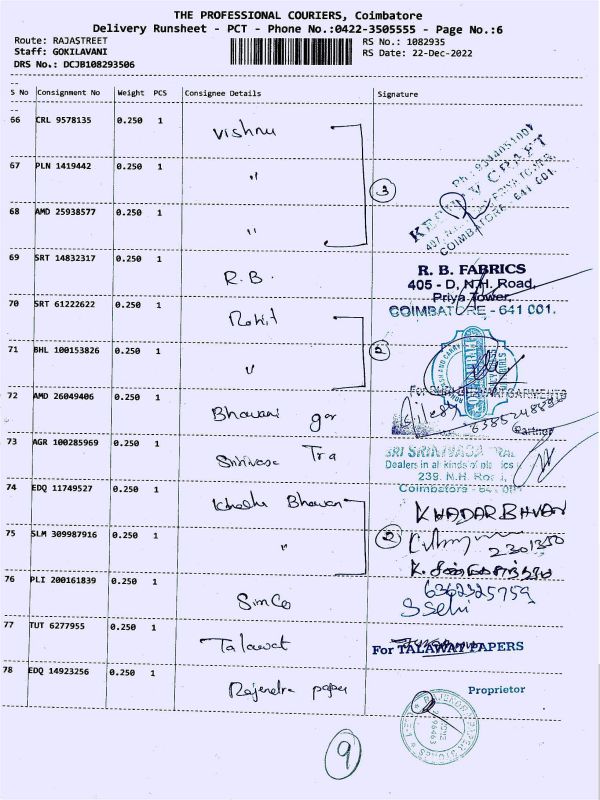 THE PROFESSIONAL COURIERS, Coimbatore
Delivery Runsheet - PCT - Phone No.:0422-3505555 - Page No.:6
Route: RAJASTREET
RS No.: 1082935
Staff: GOKILAVANI
RS Date: 22-Dec-2022
DRS No.: DCJB108293506
S No Consignment No Weight PCS Consignee Details Signature
66 CRL 9578135 0.250 1 Vishnu
67 PLN 1419442 0.250 1 "
3
68 AMD 25938577 0.250 1 "
COIMBATORE - 641 001.
69 SRT 14832317 0.250 1 R.B.
R. B. FABRICS
405 - D, N.H. Road,
Priya Tower,
COIMBATORE - 641 001.
70 SRT 61222622 0.250 1 Rohit
71 BHL 100153826 0.250 1 "
2
72 AMD 26049406 0.250 1 Bhavani gar
6385248896
Partner
73 AGR 100285969 0.250 1 Srinivasa Tra
SRI SRINIVASA TRA
Dealers in all kinds of plastics
239, N.H. Road,
Coimbatore - 641 001
74 EDQ 11749527 0.250 1 Bhavan
KHADAR BHVAN
75 SLM 309987916 0.250 1 "
2
2301350
76 PLI 200161839 0.250 1 Simco
6362325759
77 TUT 6277955 0.250 1 Talawat
For TALAWAT PAPERS
78 EDQ 14923256 0.250 1 Rajendra paper
Proprietor
9